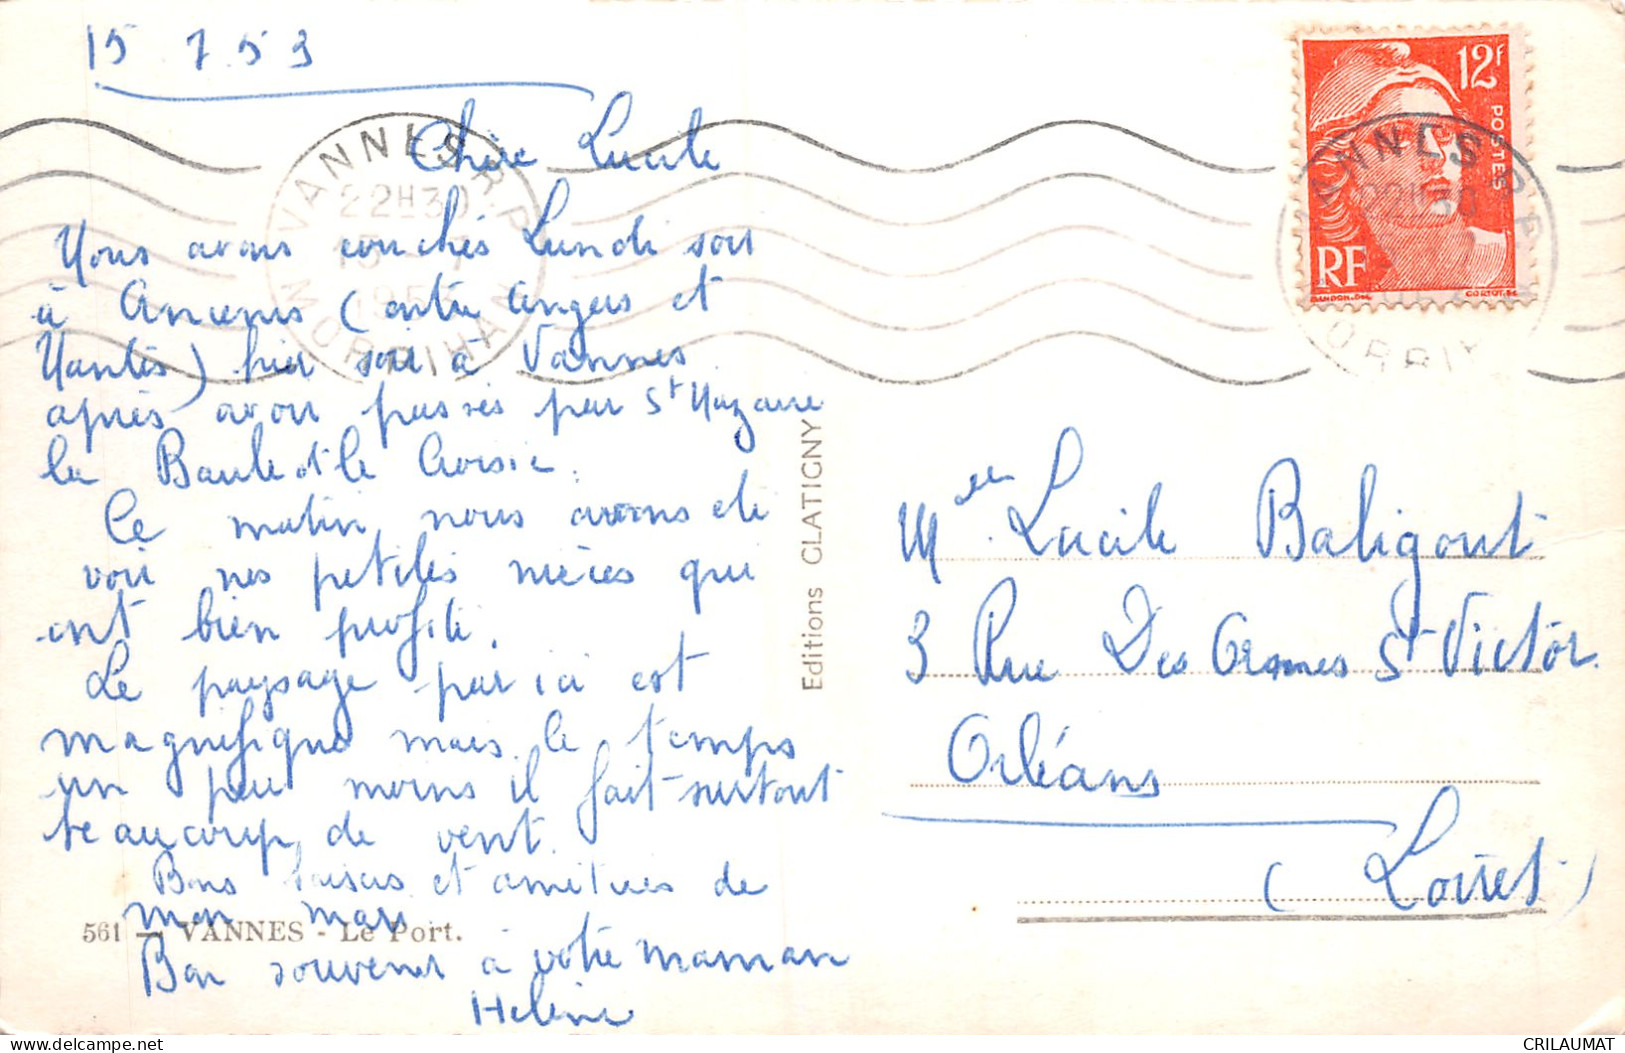 15 7 53
Chère Lucile
Nous avons couchés Lundi soir
à Ancenis (entre Angers et
Nantes) hier soir à Vannes
après avoir passés par St Nazaire
la Baule et le Croisic.
Ce matin nous avons été
voir nos petites nièces qui
ont bien profité.
Le paysage par ici est
magnifique mais le temps
un peu moins il fait surtout
beaucoup de vent.
Bons baisers et amitiés de
mon mari
Bon souvenir à votre maman
Helène
561 — VANNES - Le Port.
Editions CLATIGNY
VANNES R.P.
22H30
15 - 7
195
MORBIHAN
12F
POSTES
RF
GANDON.DEL
CORTOT.SC
VANNES R.P.
22H30
MORBIHAN
Melle Lucile Baligout
3 Rue Des Ormes St Victor
Orléans
(Loiret)
CRILAUMAT